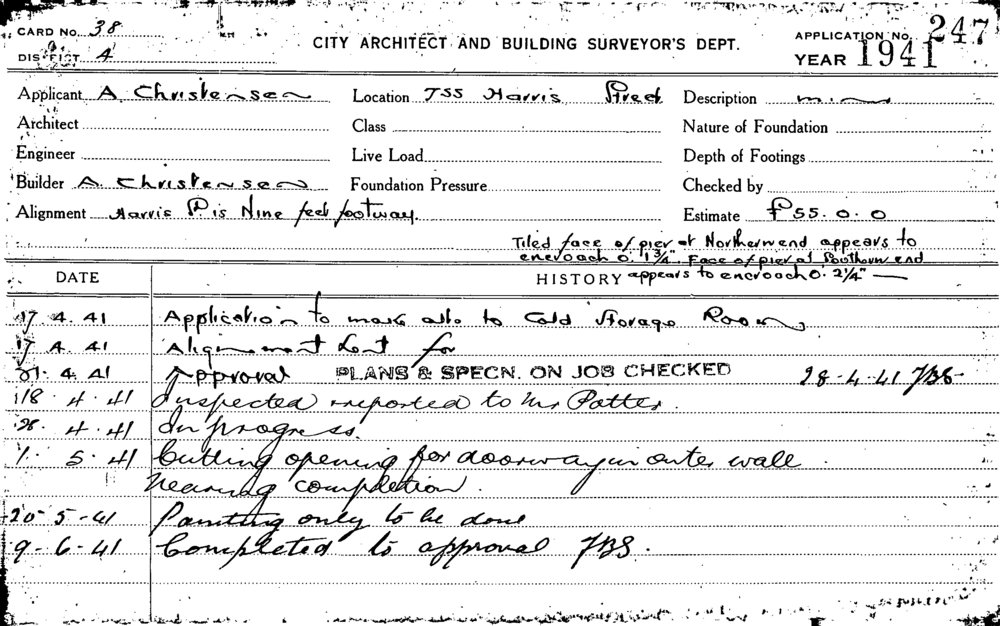 CARD NO. 38
DISTRICT 4
CITY ARCHITECT AND BUILDING SURVEYOR'S DEPT.
APPLICATION NO. 247
YEAR 1941
Applicant A Christensen Location 755 Harris Street Description
Architect Class Nature of Foundation
Engineer Live Load Depth of Footings
Builder A. Christensen Foundation Pressure Checked by
Alignment Harris St. is Nine feet footway. Estimate £55.0.0
Tiled face of pier at Northern end appears to
encroach 0. 1¾". Face of pier at Southern end
appears to encroach 0. 2¼"
DATE HISTORY
17.4.41 Application to make alts to Cold Storage Room
17.4.41 Alignment for
21.4.41 Approval PLANS & SPECN. ON JOB CHECKED 28-4-41 JBS-
18.4.41 Inspected & reported to Mr Potter.
28.4.41 In progress.
1.5.41 Cutting opening for doorway in outer wall
Nearing completion.
20-5-41 Painting only to be done
9-6-41 Completed to approval JBS.